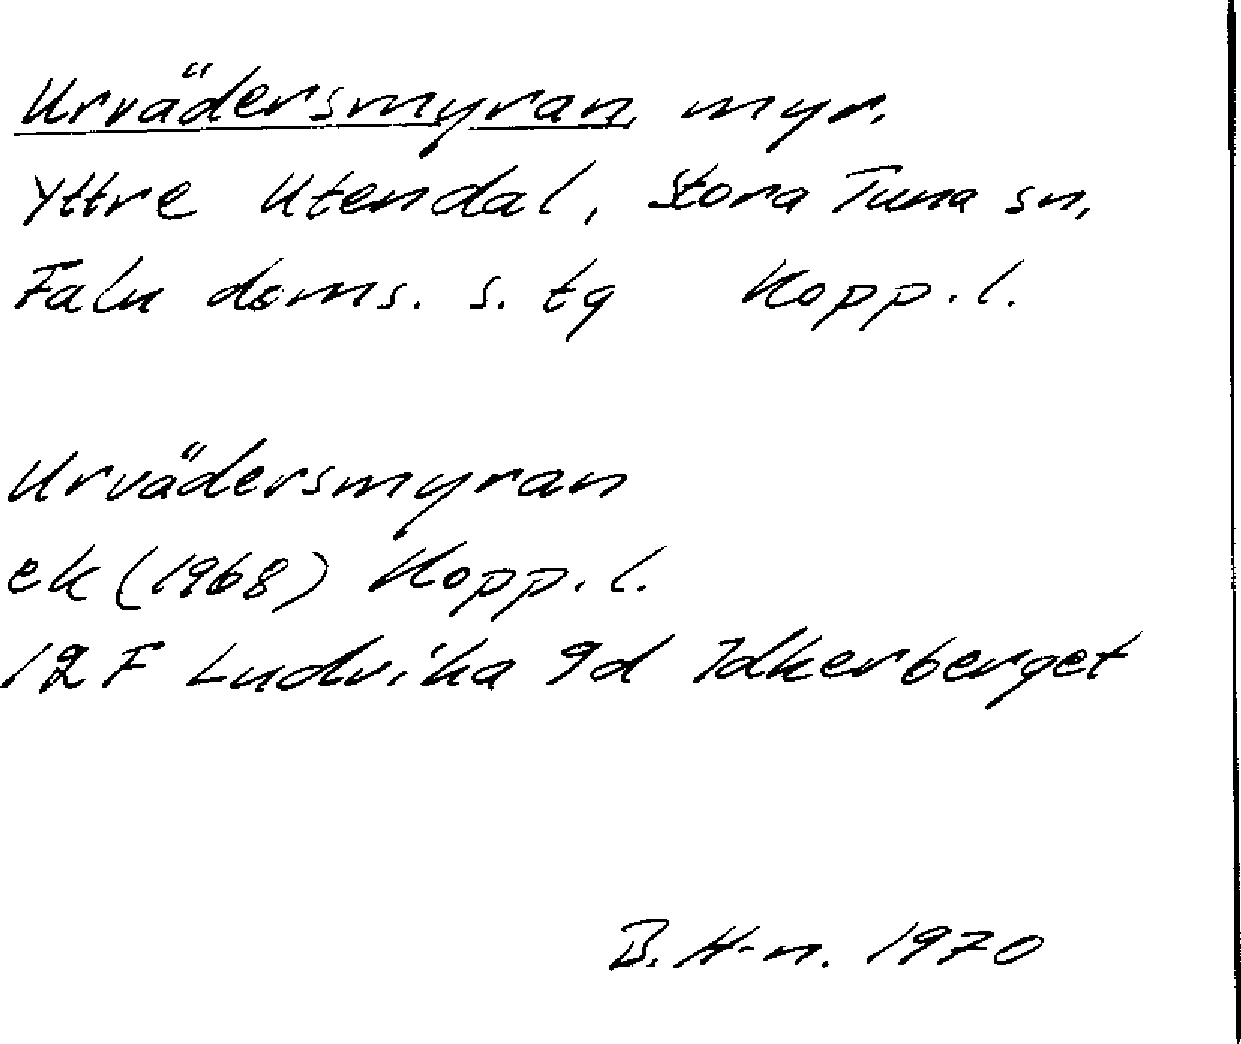 Urvädersmyran, myr,
Yttre Utendal, Stora Tuna sn,
Falu doms. s. tg Kopp. l.
Urvädersmyran
ek (1968) Kopp. l.
12 F Ludvika 9d Idkerberget
B. H-n. 1970